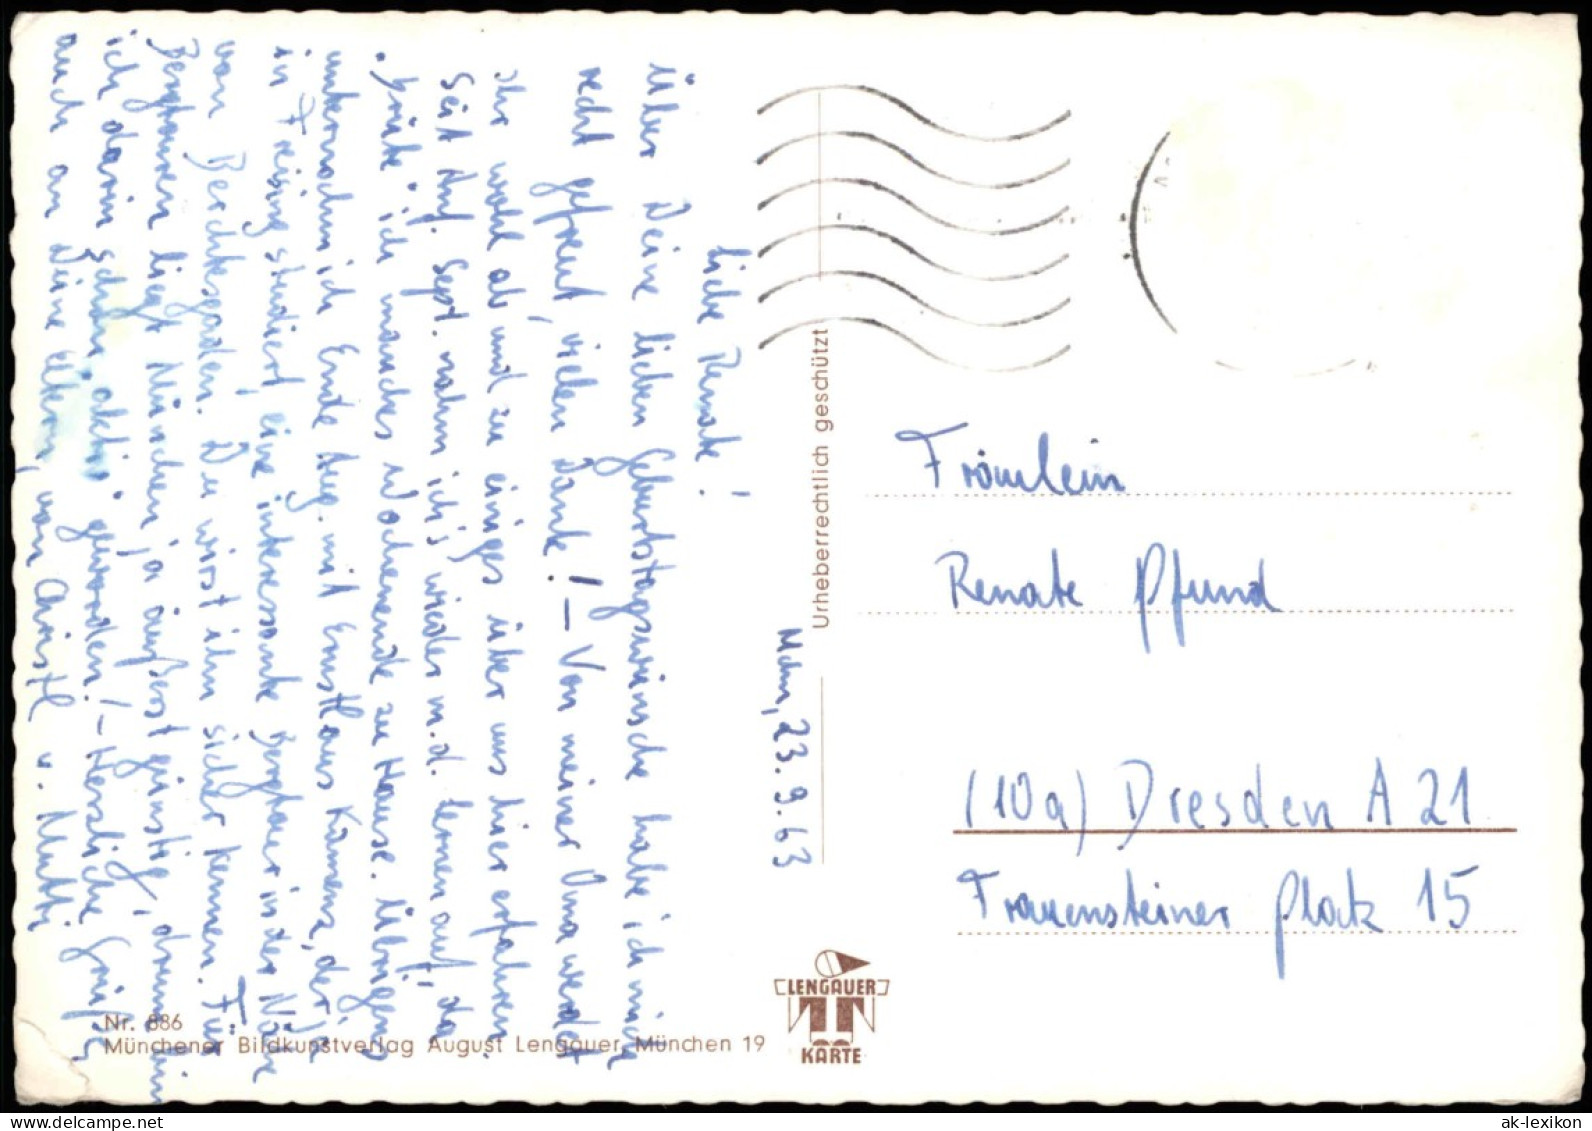 Mchn, 23.9.63
Liebe Renate!
Über Deine lieben Geburtstagswünsche habe ich mich
recht gefreut, vielen Dank! – Von meiner Oma werdet
Ihr wohl ab und zu einiges über uns hier erfahren.
Seit Anf. Sept. nahm ich's wieder m.d. Lernen auf, da
"brüte" ich manches Wochenende zu Hause. Übrigens
unternahm ich Ende Aug. mit Ernst Haus Kamenz, der ja
in Freising studiert, eine interessante Bergtour in der Nähe
von Berchtesgaden. Du wirst ihn sicher kennen. Für
Bergtouren liegt München ja äußerst günstig, drum bin
ich darin schon "aktiv" geworden! – Herzliche Grüße,
auch an Deine Eltern, von Christl u. Mutti
Urheberrechtlich geschützt
Fräulein
Renate Pfund
(10a) Dresden A 21
Frauensteiner Platz 15
LENGAUER
KARTE
Nr. 886
Münchener Bildkunstverlag August Lengauer, München 19
ak-lexikon